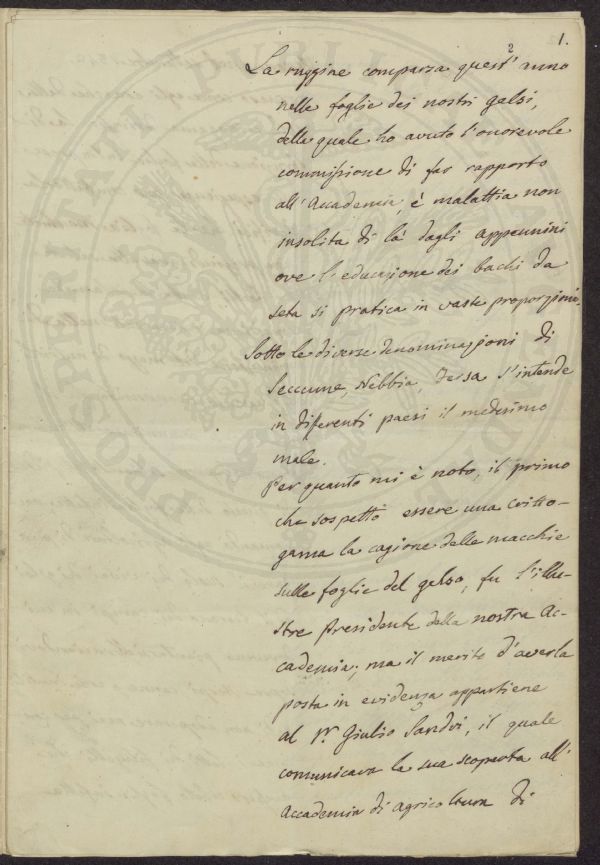 1.
2
La ruggine comparsa quest' anno
nelle foglie dei nostri gelsi,
della quale ho avuto l'onorevole
commissione di far rapporto
all'Accademia, è malattia non
insolita di là dagli appennini
ove l'educazione dei bachi da
seta si pratica in vaste proporzioni.
Sotto le diverse denominazioni di
Seccume, Nebbia, Fersa s'intende
in differenti paesi il medesimo
male.
Per quanto mi è noto, il primo
che sospettò essere una critto-
gama la cagione delle macchie
sulle foglie del gelso, fu l'illu-
stre Presidente della nostra Ac-
cademia; ma il merito d'averla
posta in evidenza appartiene
al Dr. Giulio Sandri, il quale
comunicava la sua scoperta all'
Accademia di agricoltura di